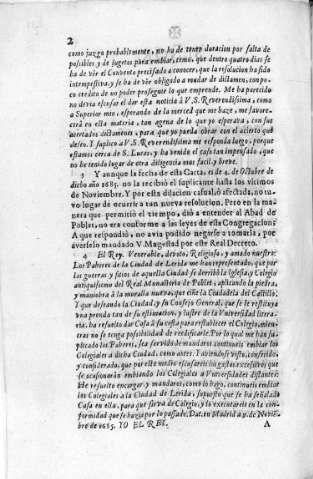 2
como juzgo probablemente, no ha de tener duracion por falta de
posibles, y de sugetos para embiar, temo, que dentro quatro dias se
ha de vèr el Convento precisado a conocer, que la resolucion ha sido
intempestiva, y se ha de vèr obligado a mudar de dictamen, con po-
co credito de no poder proseguir lo que emprende. Me ha parecido
no devia escusar el dar esta noticia à V.S. Reverendissima, como
a Superior mio, esperando de la merced que me haze, me favore-
cerà en esta materia, tan agena de lo que esperava, con sus
acertados dictamenes, para que yo pueda obrar con el acierto què
deseo. Y suplico a V.S. Reverendissima me responda luego, porque
estamos cerca de S. Lucas, y ha venido el caso tan impensado, que
no he tenido lugar de otra diligencia mas facil y breve.
3 Y aunque la fecha de esta Carta, es de 4. de Octubre de
dicho año 1685. no la recibiò el suplicante hasta los vltimos
de Noviembre. Y por esta dilacion casual, ò afectada, no tu-
vo lugar de ocurrir a tan nueva resolucion. Pero en la ma-
nera que permitiò el tiempo, diò a entender al Abad de
Poblet, no era conforme a las leyes de esta Congregacion:
A que respondiò, no avia podido negarse a tomarla, por
averselo mandado V. Magestad por este Real Decreto.
4 El Rey. Venerable, devoto, Religioso, y amado nuestro:
Los Paheres de la Ciudad de Lerida me han representado, que por
las guerras y sitios de aquella Ciudad se derribò la Iglesia, y Colegio
antiquissimo del Real Monasterio de Poblet, aplicando la piedra,
y maniobra à la muralla nueva, que ciñe la Ciudadela del Castillo:
Y que deseando la Ciudad y su Consejo General, que se le restituya
una prenda tan de su estimacion, y lustre de la Universidad litera-
ria, ha resuelto dar Casa à su costa para restablecer el Colegio, mien-
tras no se tenga posibilidad de reedificarle. Por lo qual me han su-
plicado los Paheres, sea servido de mandaros continueis embiar los
Colegiales a dicha Ciudad, como antes. Y aviendose visto, conferido,
y considerado, que por este medio se escusaràn los gastos excessivos que
se ocasionaràn embiando los Colegiales a Vniversidades distantes:
He resuelto encargar, y mandaros, como lo hago, continueis embiar
los Colegiales a la Ciudad de Lerida, supuesto que se ha señalado
Casa en ella, para que sirva de Colegio, y lo executareis en la con-
formidad que se hazia por lo passado. Dat. en Madrid a 7. de Noviē-
bre de 1685. YO EL REY.
A